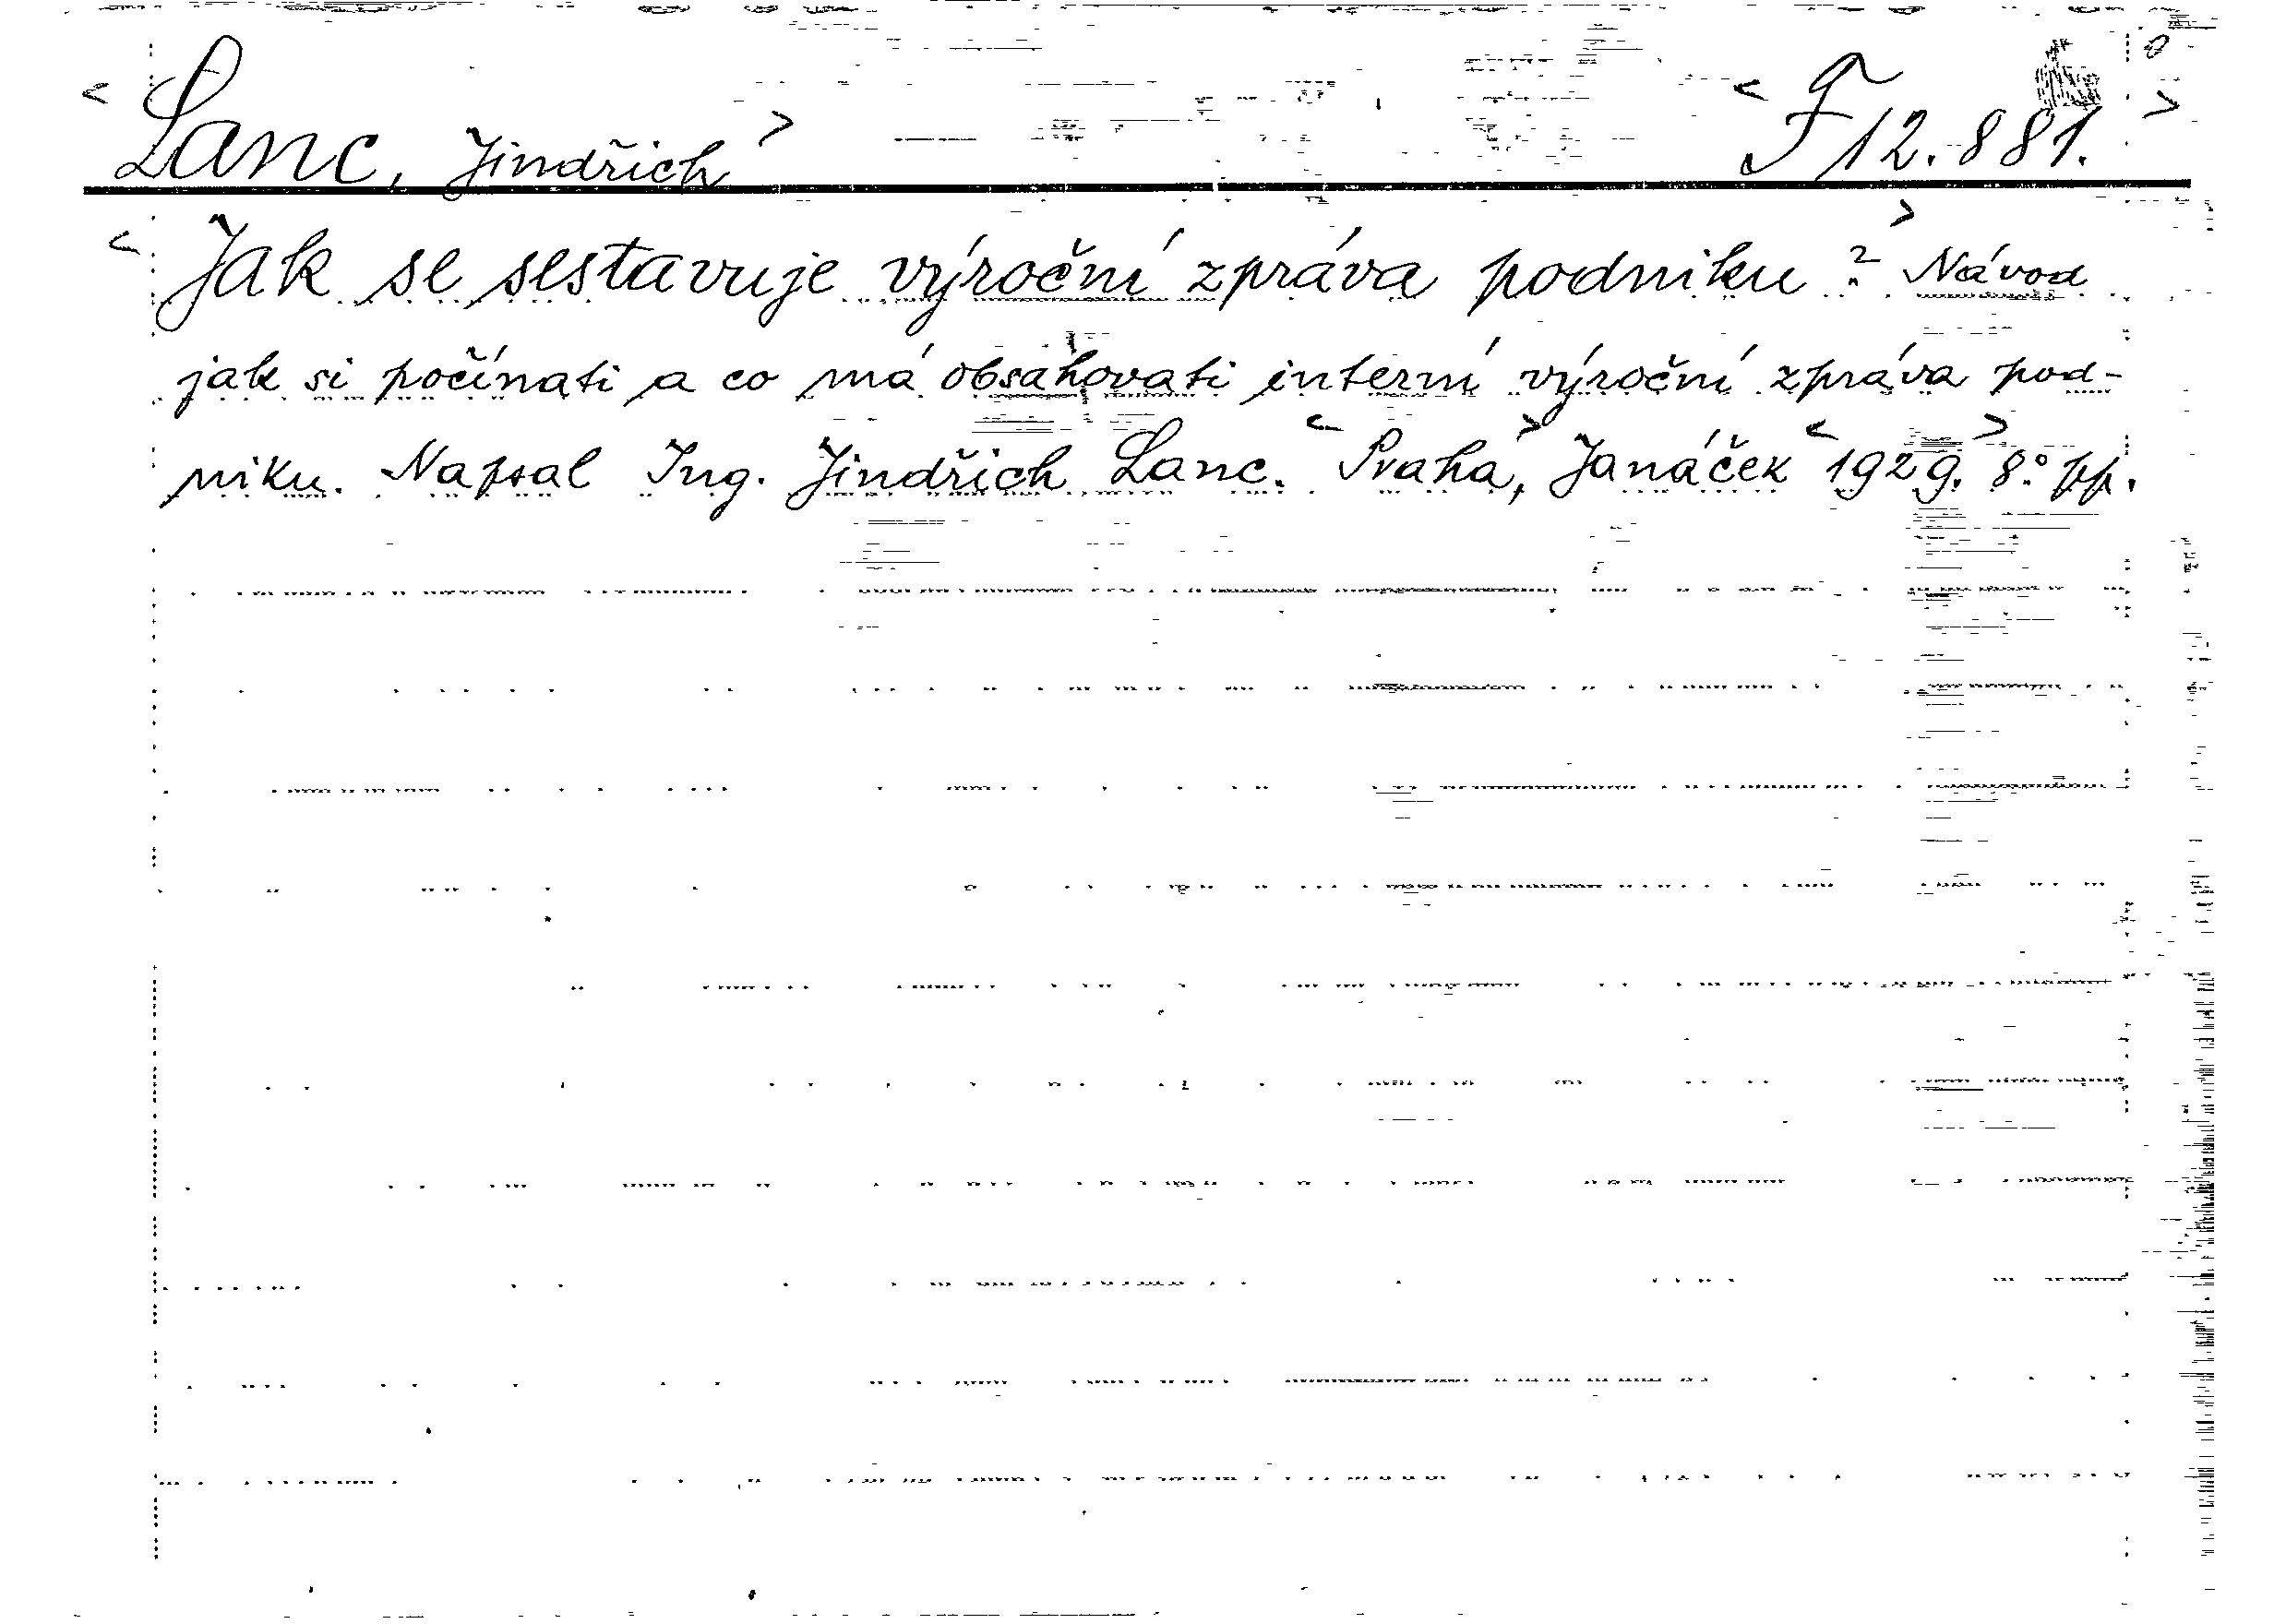 < Lanc, Jindřich > < F 12.881. >
< Jak se sestavuje výroční zpráva podniku ? > Návod
jak si počínati a co má obsahovati interní výroční zpráva pod-
niku. Napsal Ing. Jindřich Lanc. < Praha, > Janáček < 1929. > 8° pp.